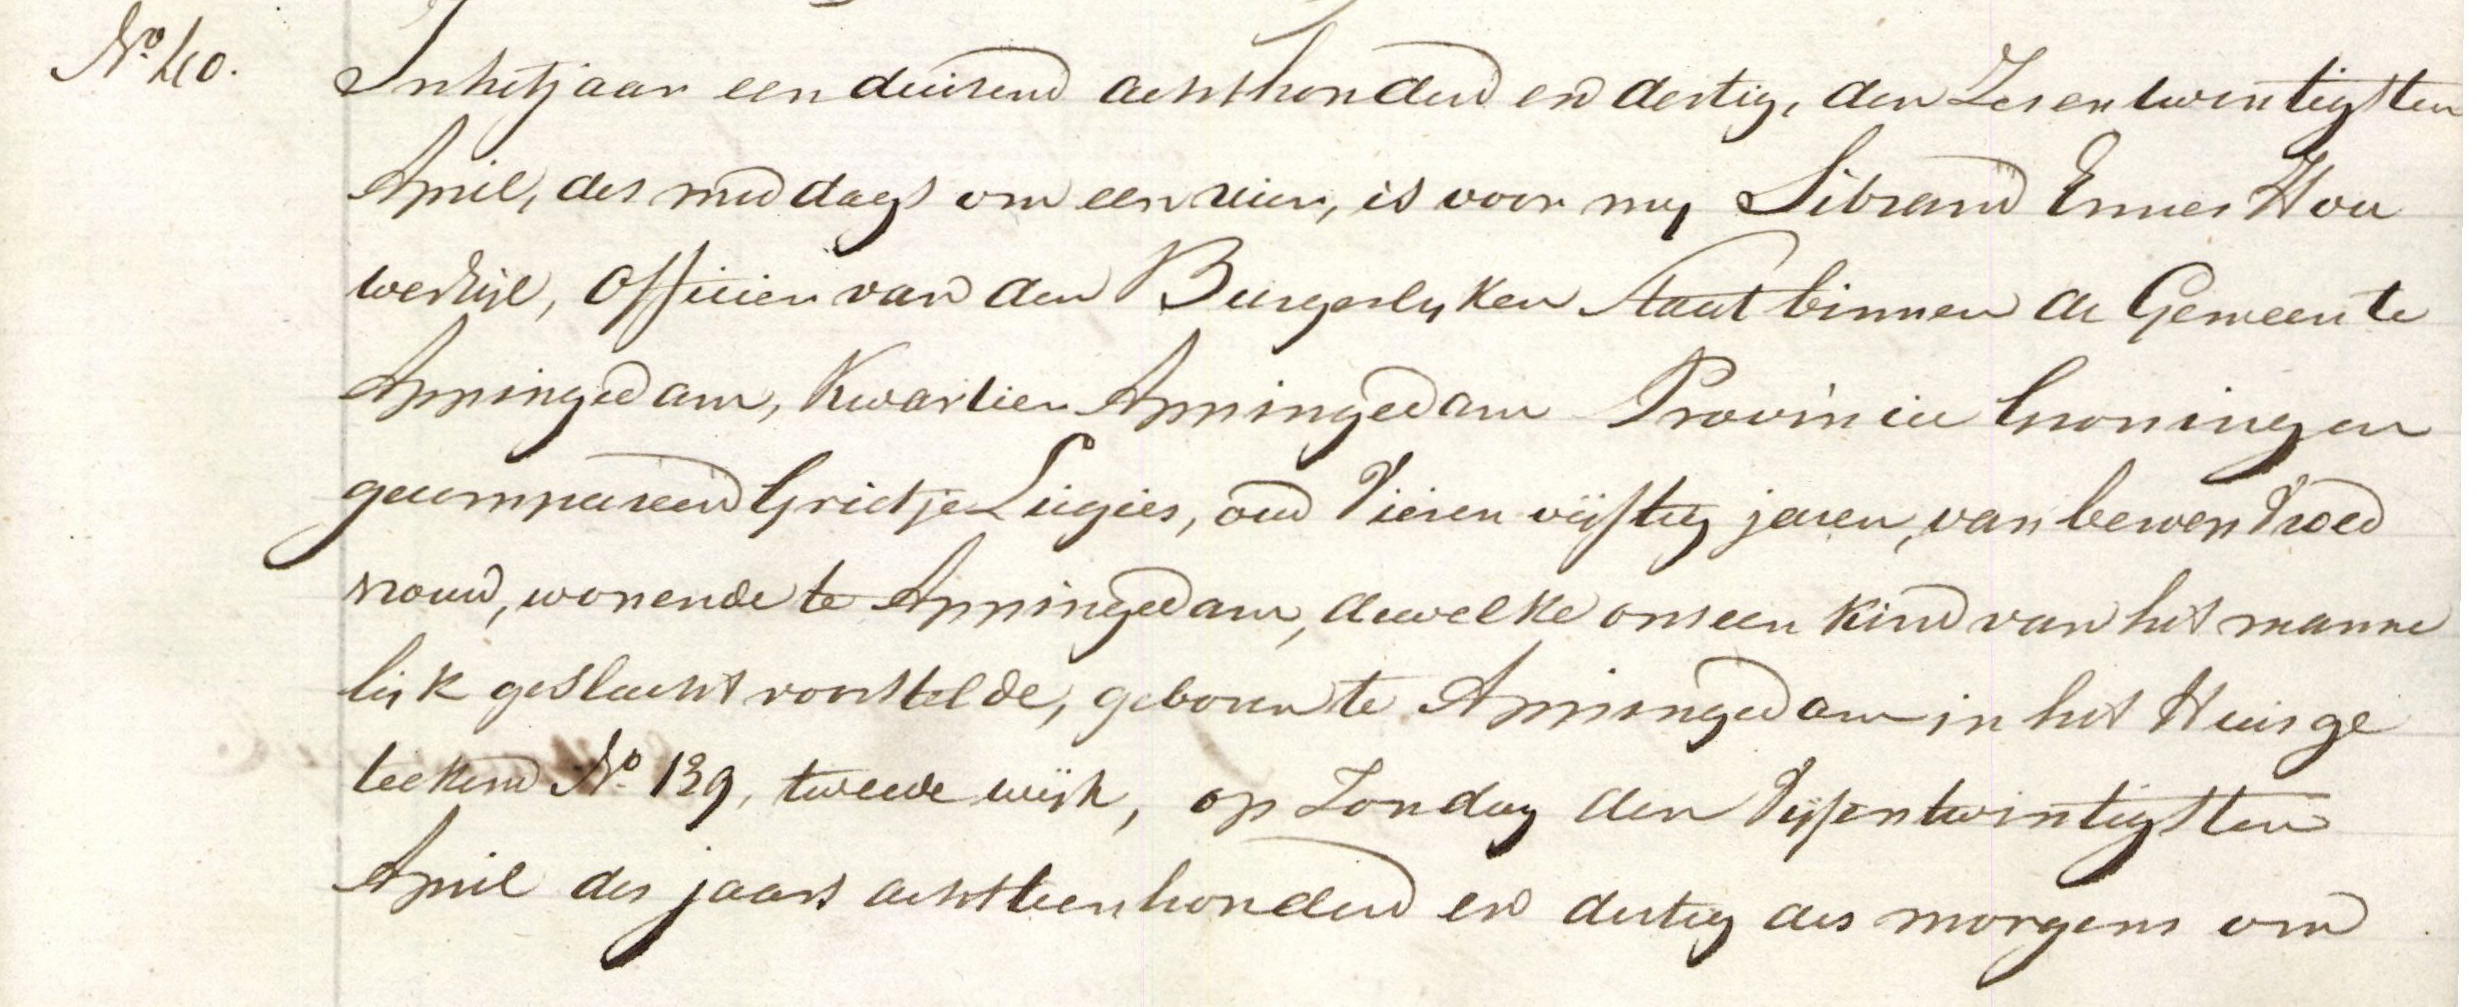 No. 40.
In het jaar een duizend achthonderd en dertig, den Zesentwintigsten
April, des middags om een uur, is voor my Sibrand Ennes Hou
werzijl, Officier van den Burgerlyken Staat binnen de Gemeente
Appingedam, Kwartier Appingedam Provincie Groningen
gecompareerd Grietje Lugies, oud Vierenvijftig jaren, van beroep Vroed
vrouw, wonende te Appingedam, dewelke ons een kind van het manne
lijk geslacht voorstelde, geboren te Appingedam in het Huis ge
teekend No. 139, tweede wijk, op Zondag den Vijfentwintigsten
April des jaars achttienhonderd en dertig des morgens om